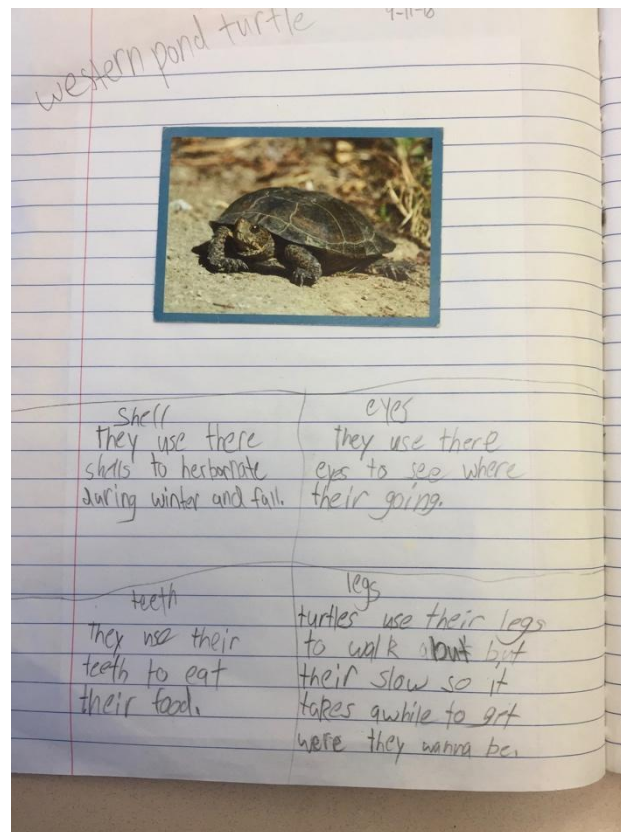 western pond turtle
shell
they use there
shells to herbornate
during winter and fall.
eyes
they use there
eyes to see where
their going.
teeth
They use their
teeth to eat
their food.
legs
turtles use their legs
to walk but
their slow so it
takes awhile to get
were they wanna be.